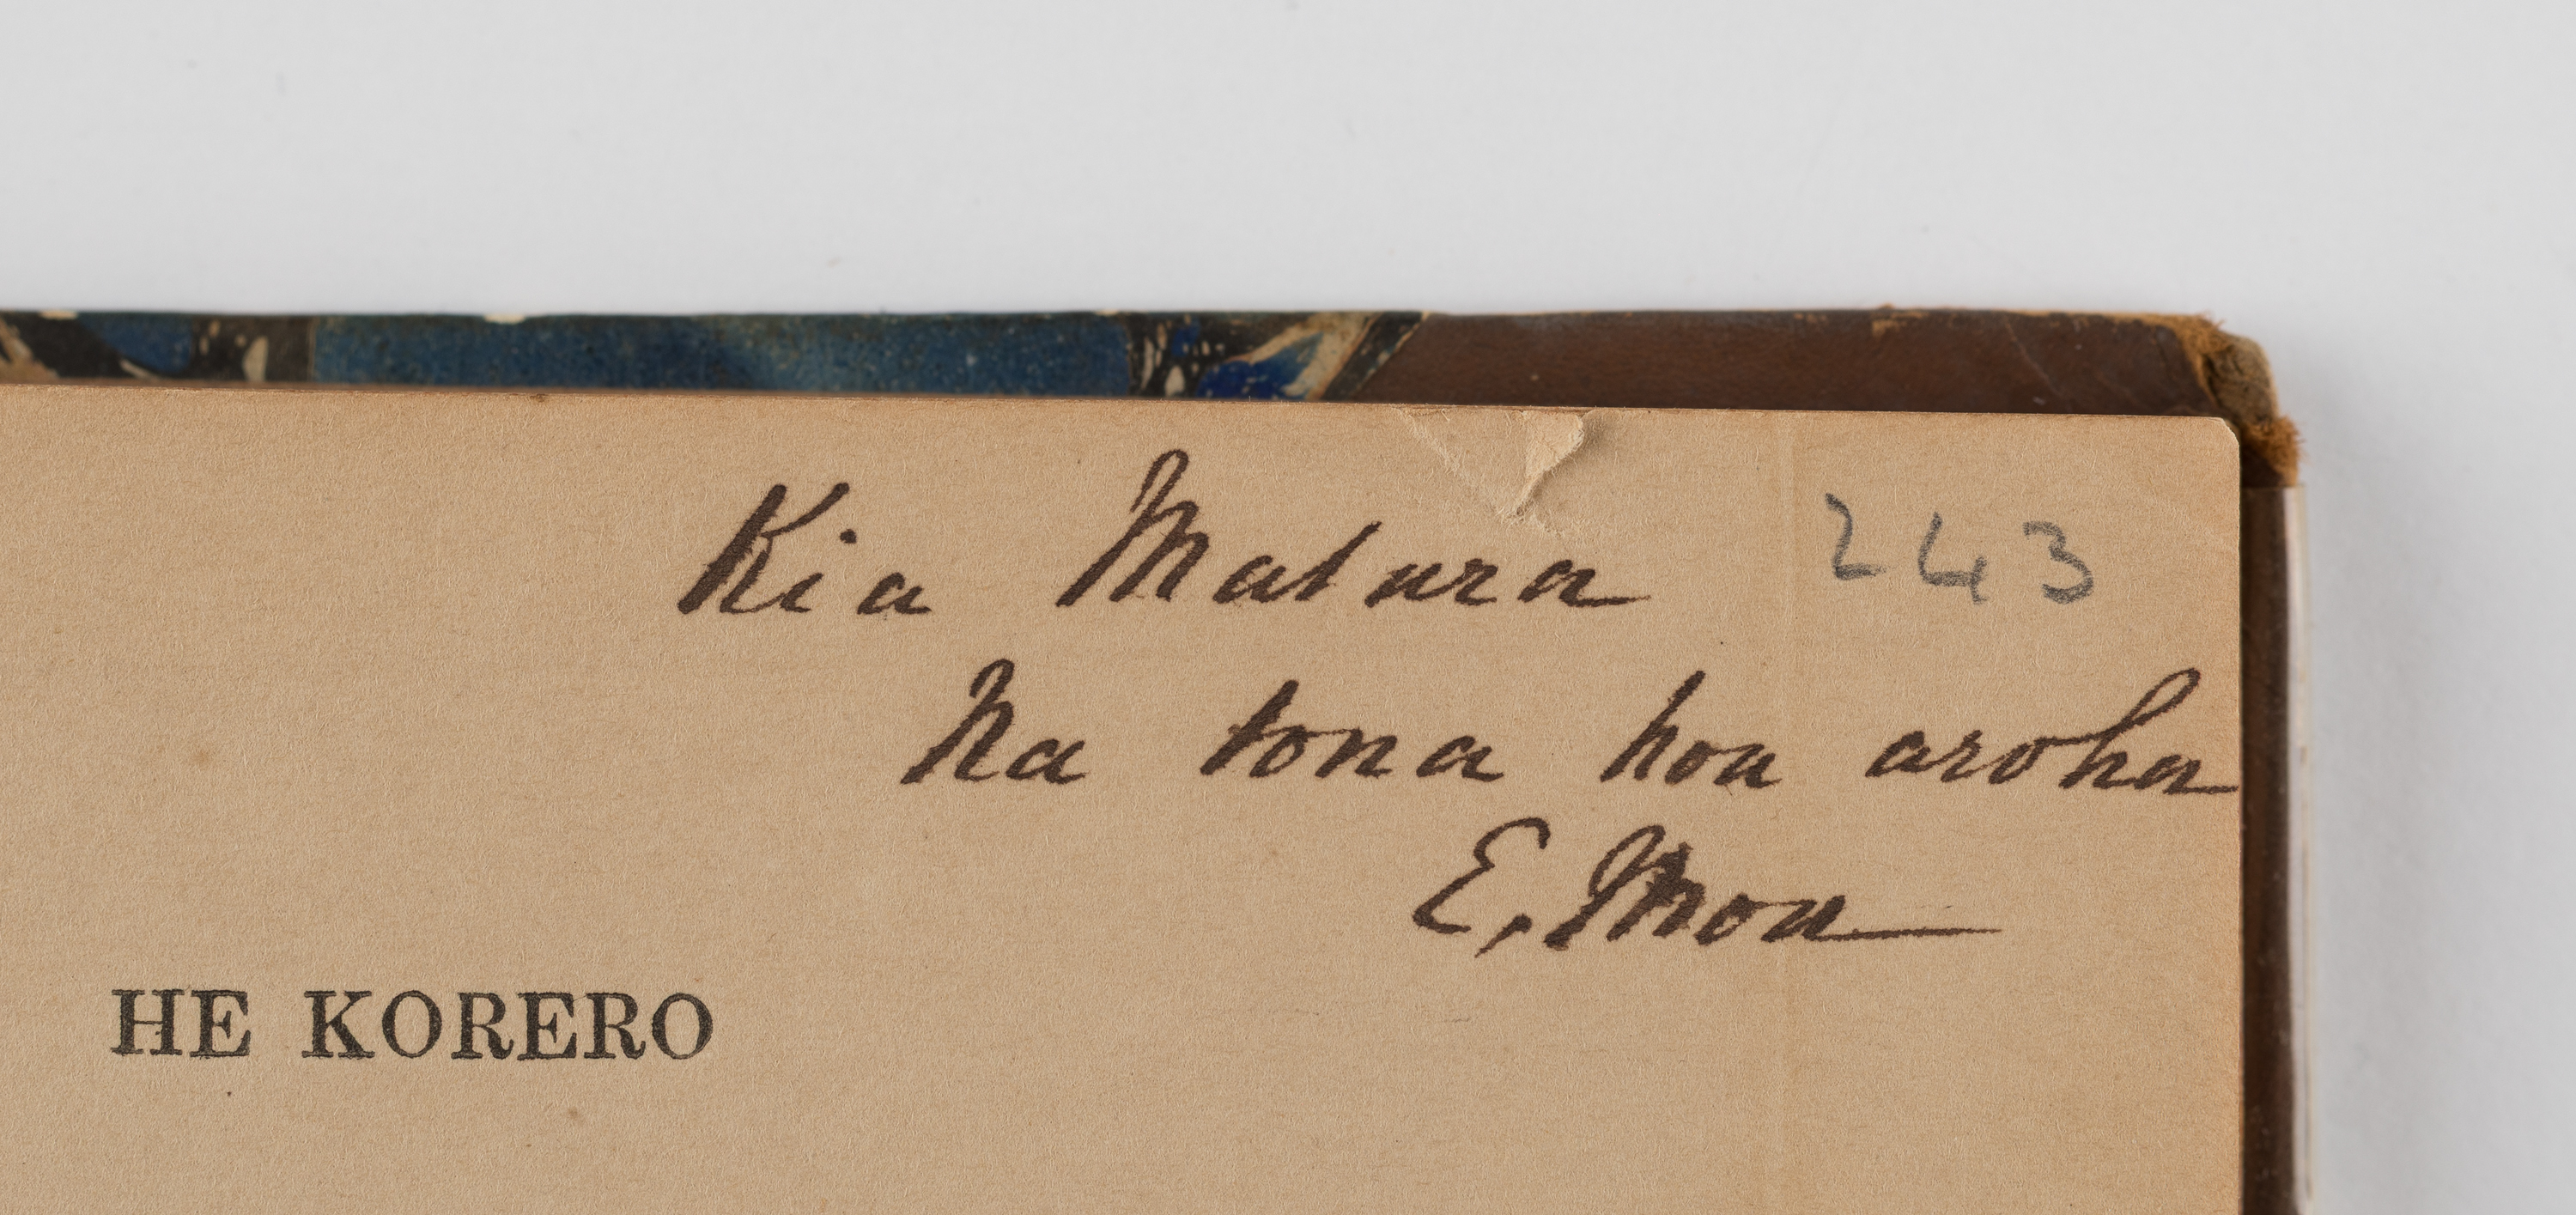 Kia Matura 243
Na tona hoa aroha
E, Moa
HE KORERO